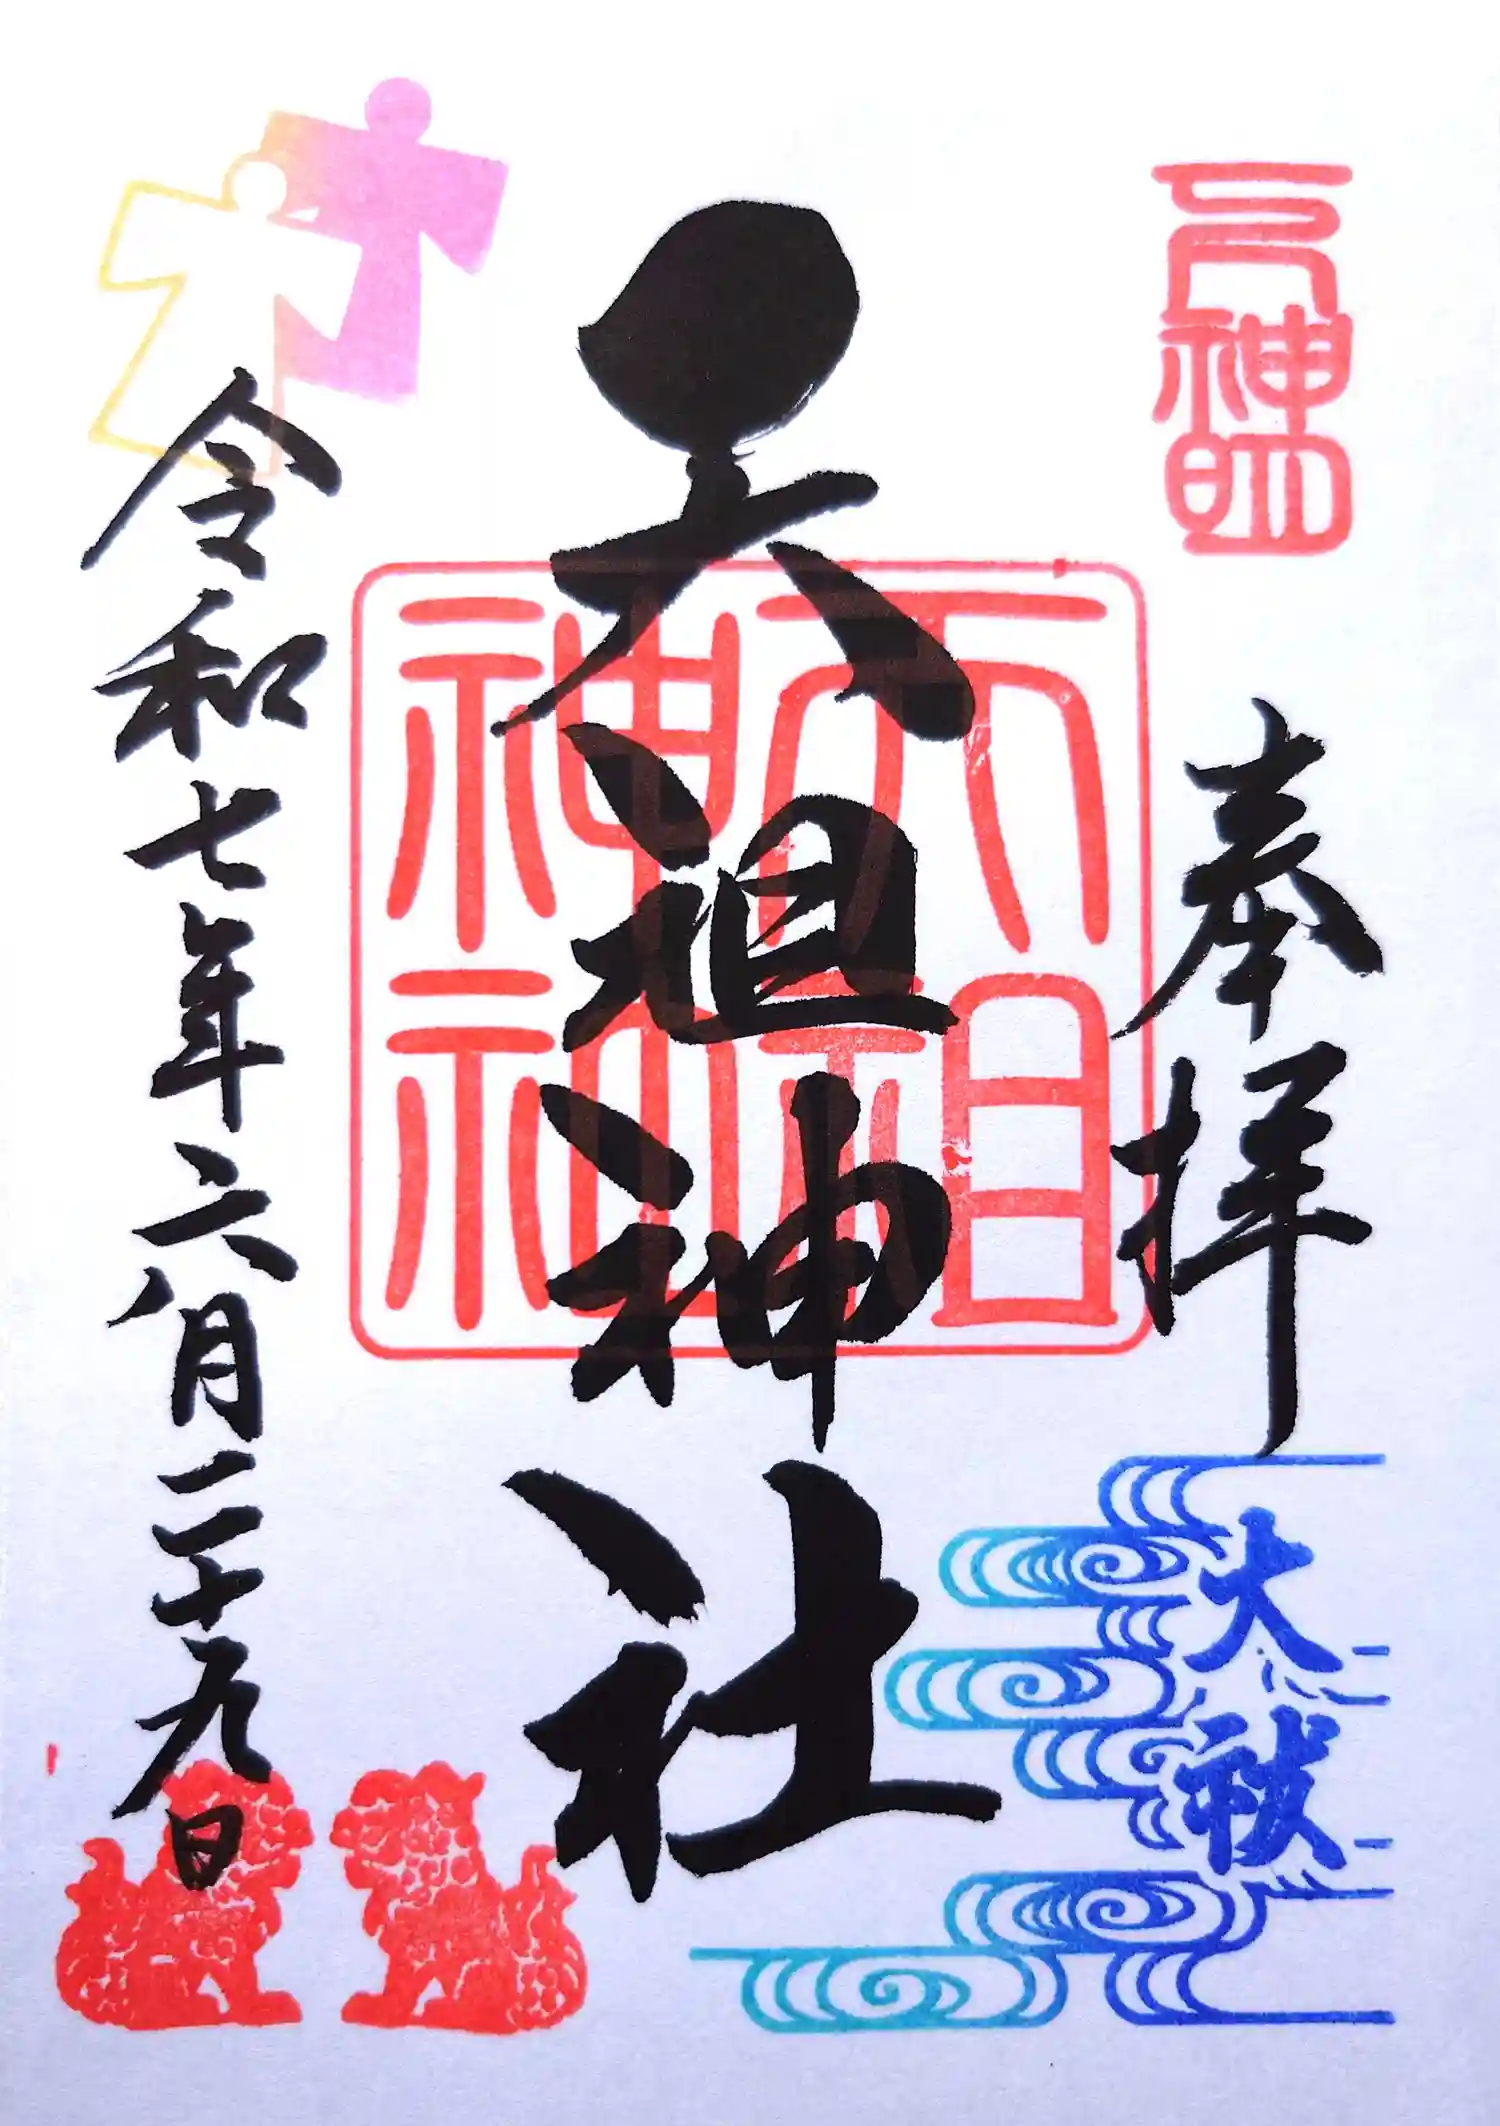 神明
奉拝
大祓
天祖神社
天祖
神社
令和七年六月二十九日